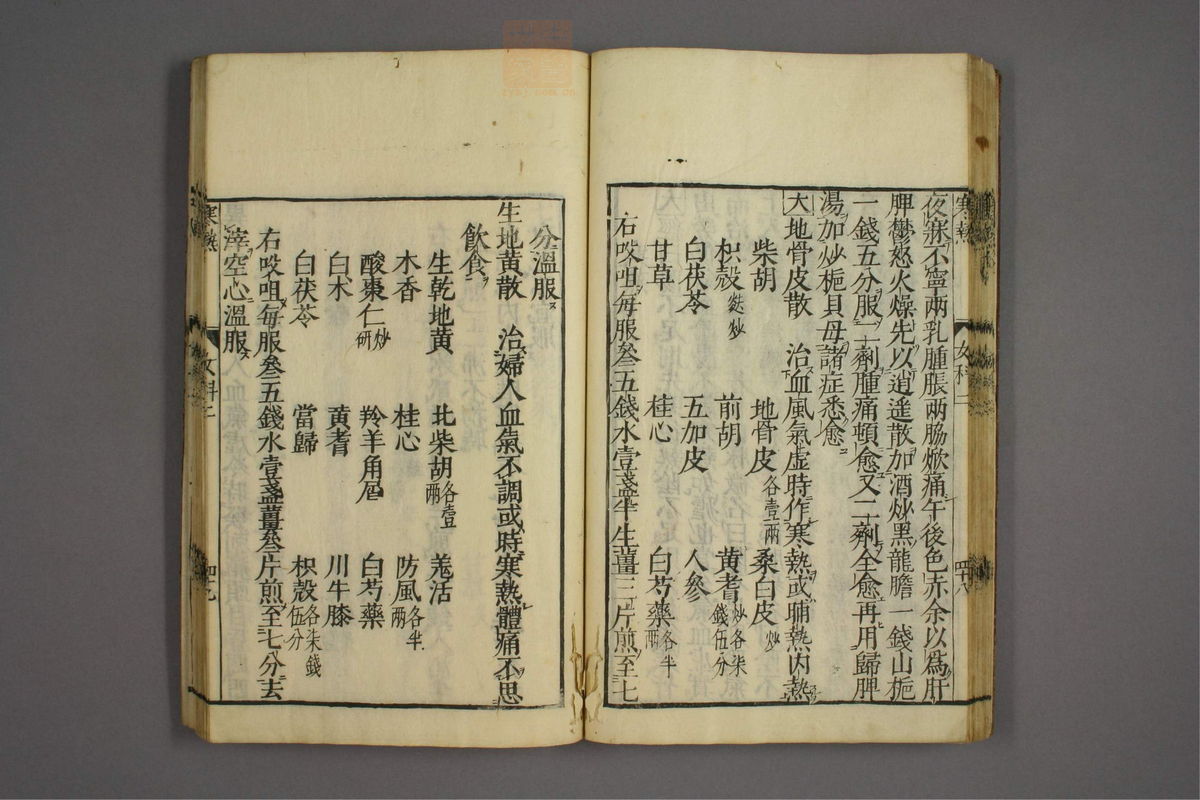 夜寐不寧兩乳腫脹兩脇焮痛午後色赤余以爲肝
脾鬱怒火燥先以逍遙散加酒炒黑龍膽一錢山梔
一錢五分服二劑腫痛頓愈又二劑全愈再用歸脾
湯加炒梔貝母諸症悉愈
大地骨皮散 治血風氣虛時作寒熱或晡熱內熱
柴胡 地骨皮各壹兩 桑白皮炒
枳殼麩炒 前胡 黃耆炒各柒錢伍分
白茯苓 五加皮 人參
甘草 桂心 白芍藥各半兩
右㕮咀每服叄五錢水壹盞半生薑三片煎至七
寒熱 女科二 四十八
分溫服
生地黃散 治婦人血氣不調或時寒熱體痛不思
飲食
生乾地黃 北柴胡各壹兩 羗活
木香 桂心 防風各半兩
酸棗仁炒研 羚羊角屑 白芍藥
白朮 黃耆 川牛膝
白茯苓 當歸 枳殼各柒錢伍分
右㕮咀每服叄五錢水壹盞薑叄片煎至七分去
滓空心溫服
寒熱 女科二 四十九
zysj.com.cn